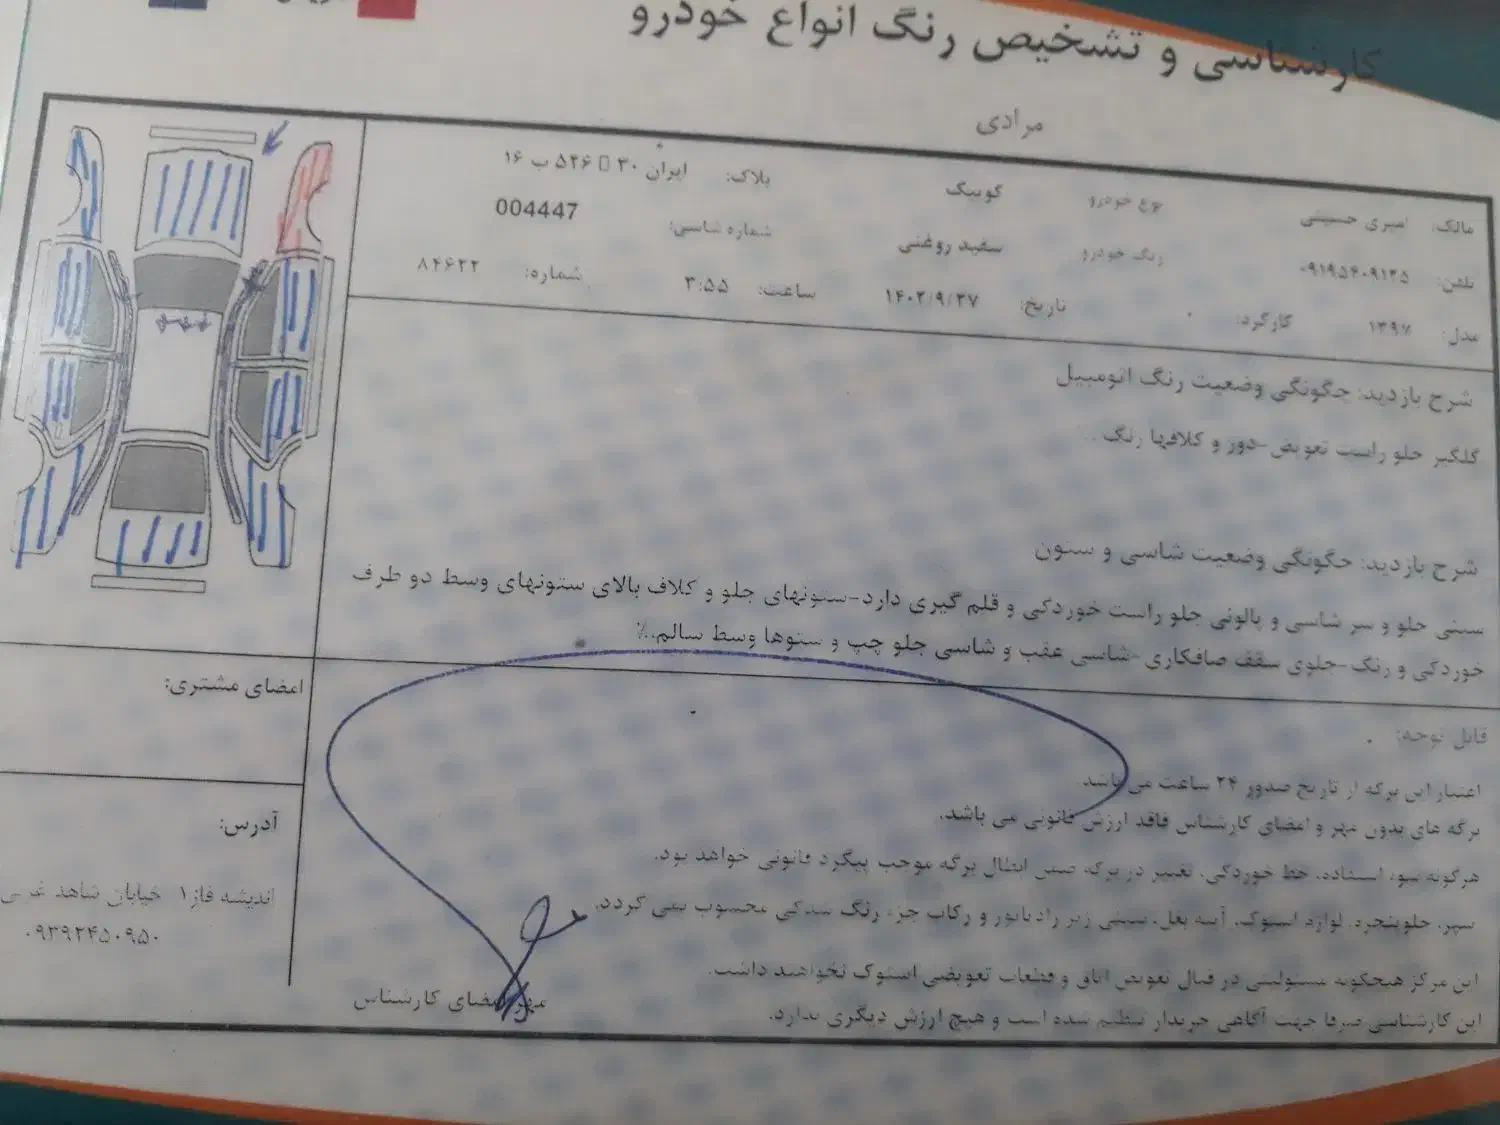 کارشناسی و تشخیص رنگ انواع خودرو
مرادی
مالک: امیری حسینی نوع خودرو کوییک پلاک: ایران ۳۰ ۵۲۶ ب ۱۶
تلفن: ۰۹۱۹۵۴۰۹۱۲۵ رنگ خودرو سفید روغنی شماره شاسی: 004447
مدل: ۱۳۹۷ کارکرد: ۰ تاریخ: ۱۴۰۲/۹/۲۷ ساعت: ۳:۵۵ شماره: ۸۴۶۲۲
شرح بازدید: چگونگی وضعیت رنگ اتومبیل
گلگیر جلو راست تعویض-دور و کلافها رنگ
شرح بازدید: چگونگی وضعیت شاسی و ستون
سینی جلو و سر شاسی و پالونی جلو راست خوردگی و قلم گیری دارد-ستونهای جلو و کلاف بالای ستونهای وسط دو طرف
خوردگی و رنگ-جلوی سقف صافکاری-شاسی عقب و شاسی جلو چپ و ستوها وسط سالم.٪
قابل توجه:
اعتبار این برگه از تاریخ صدور ۲۴ ساعت می باشد
برگه های بدون مهر و امضای کارشناس فاقد ارزش قانونی می باشد.
هرگونه سوء استفاده، خط خوردگی، تغییر در برگه ضمن ابطال برگه موجب پیگرد قانونی خواهد بود.
سپر، جلوپنجره، لوازم استوک، آینه بغل، سینی زیر رادیاتور و رکاب جزء رنگ شدگی محسوب نمی گردد.
این مرکز هیچگونه مسئولیتی در قبال تعویض اتاق و قطعات تعویضی استوک نخواهند داشت.
این کارشناسی صرفا جهت آگاهی خریدار تنظیم شده است و هیچ ارزش دیگری ندارد.
مهر امضای کارشناس
امضای مشتری:
آدرس:
اندیشه فاز۱ خیابان شاهد غربی
۰۹۳۹۲۴۵۰۹۵۰